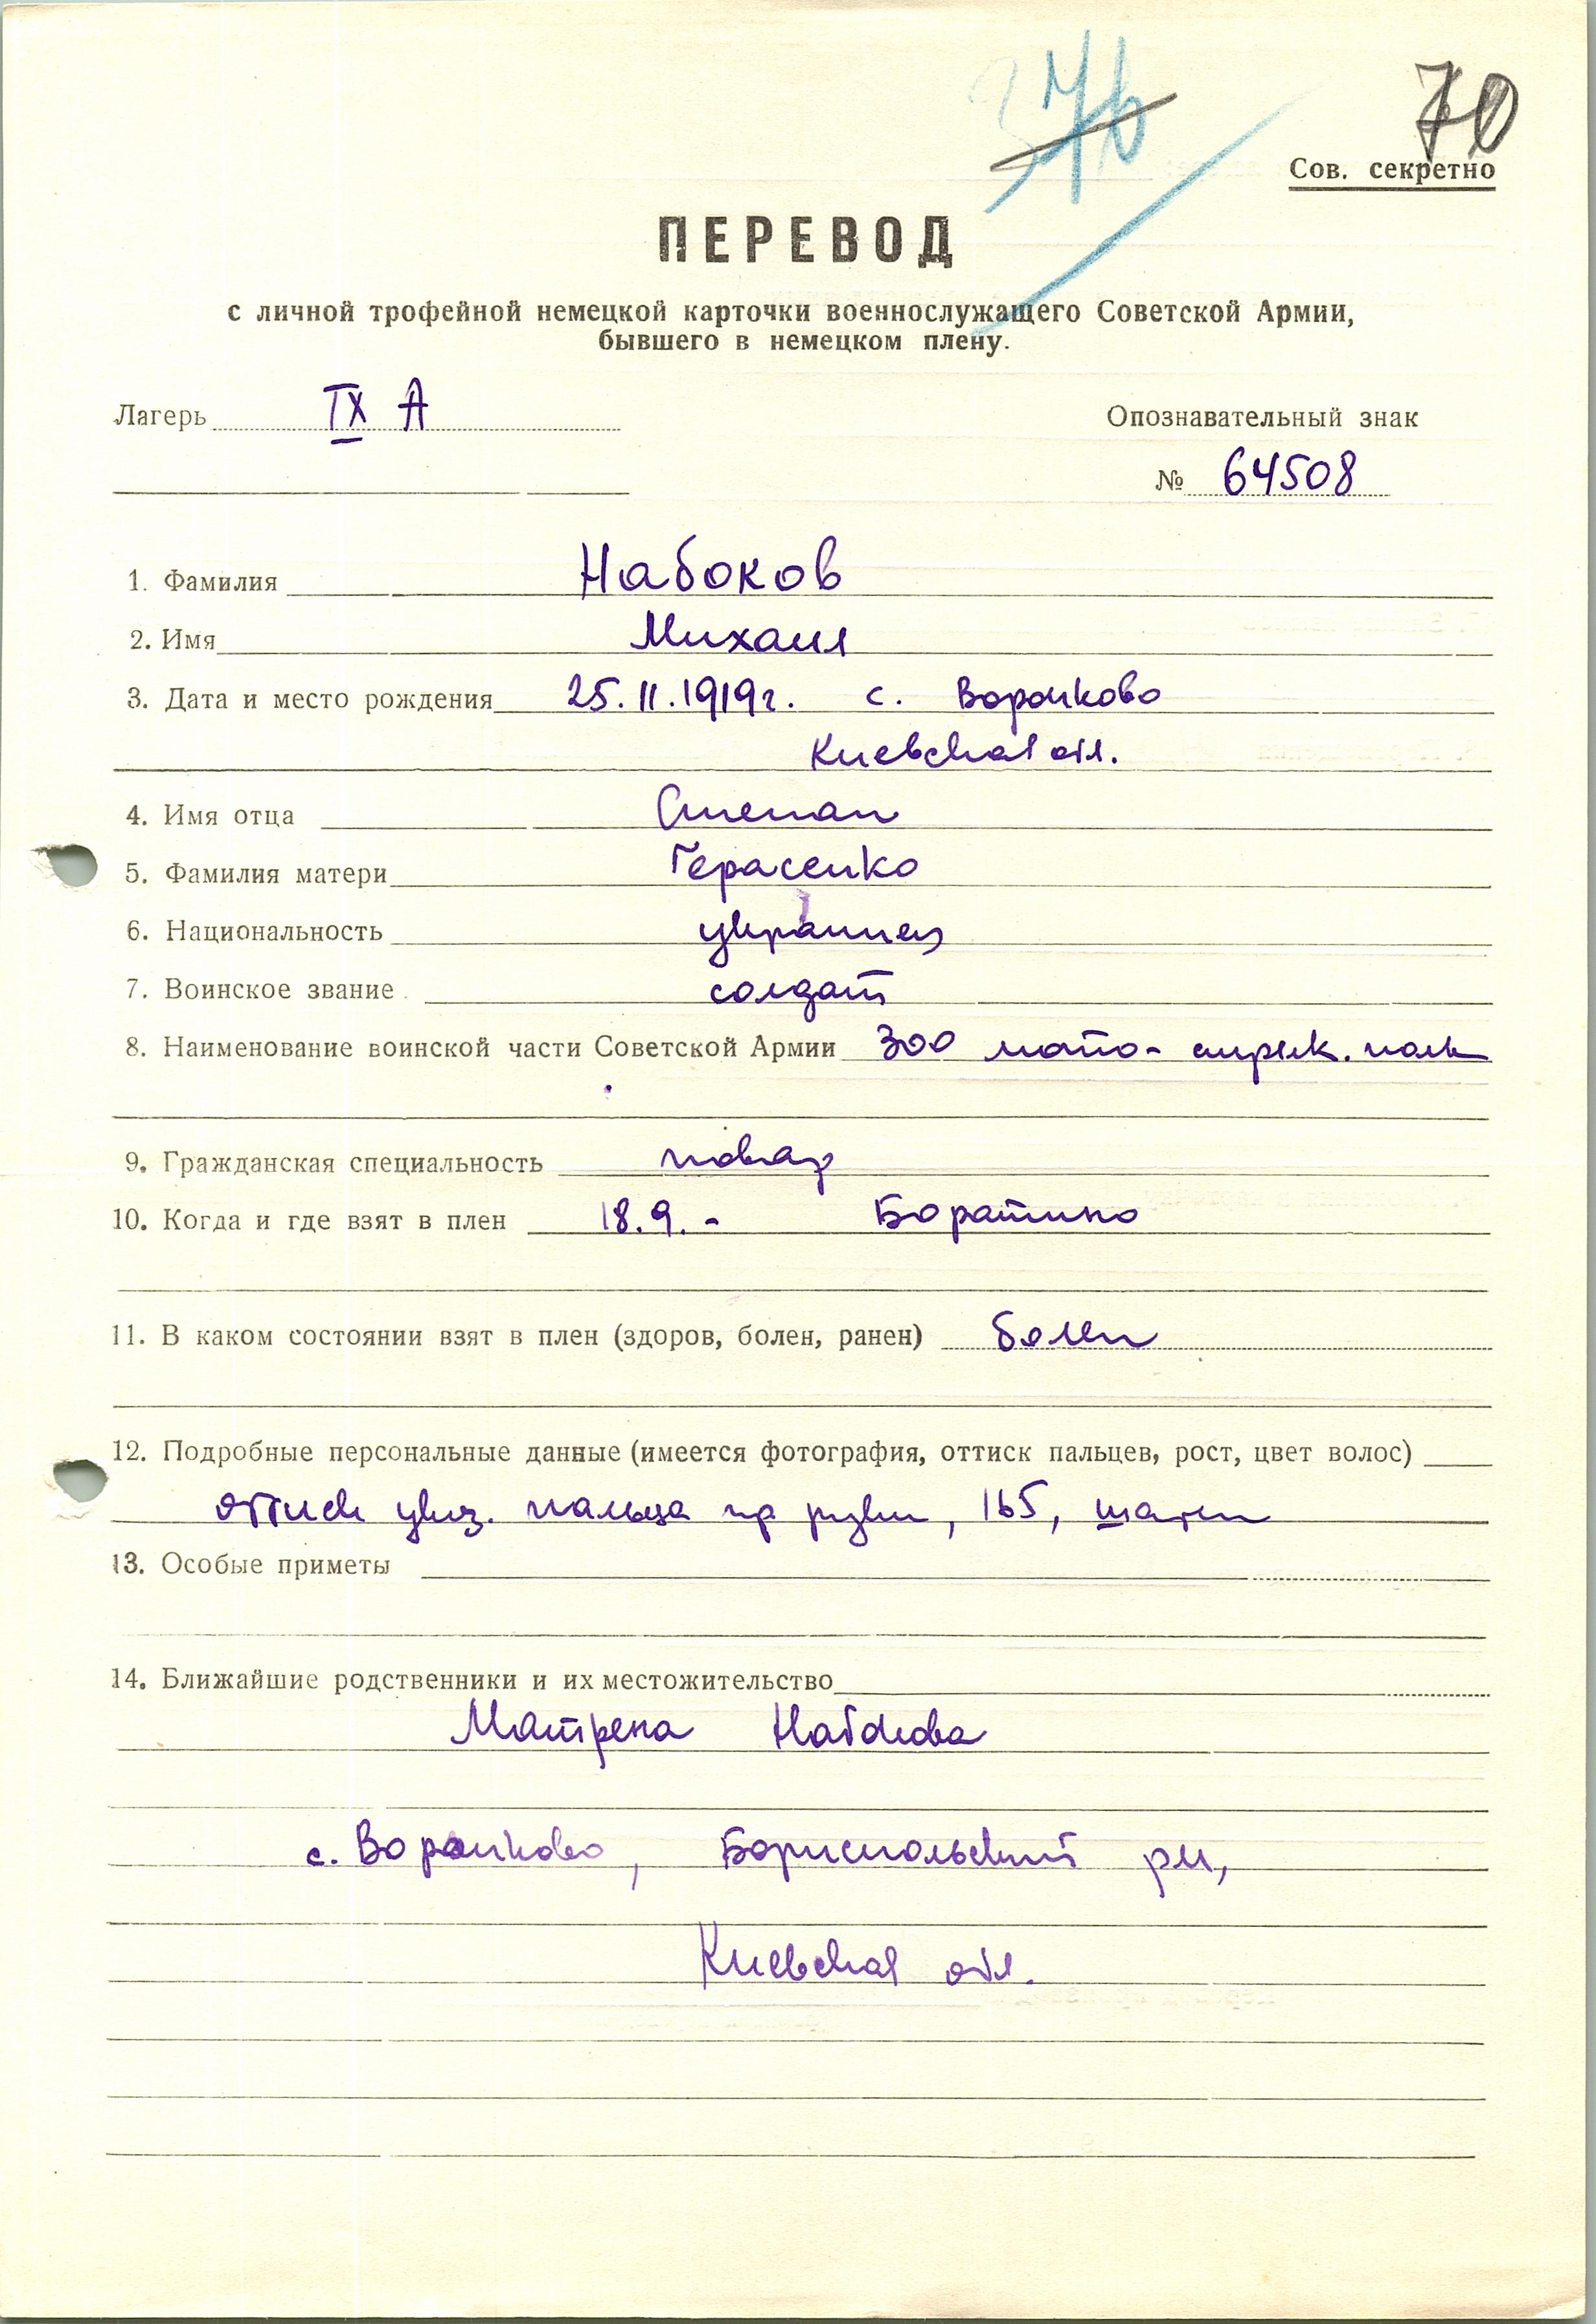 376
70
Сов. секретно
ПЕРЕВОД
с личной трофейной немецкой карточки военнослужащего Советской Армии,
бывшего в немецком плену.
Лагерь IX А
Опознавательный знак
№ 64508
1. Фамилия Набоков
2. Имя Михаил
3. Дата и место рождения 25.11.1919г. с. Воронково
Киевская обл.
4. Имя отца Степан
5. Фамилия матери Герасенко
6. Национальность украинец
7. Воинское звание солдат
8. Наименование воинской части Советской Армии 300 мото-стрелк. полк
9. Гражданская специальность повар
10. Когда и где взят в плен 18.9. - Боратино
11. В каком состоянии взят в плен (здоров, болен, ранен) болен
12. Подробные персональные данные (имеется фотография, оттиск пальцев, рост, цвет волос)
оттиск указ. пальца пр руки, 165, шатен
13. Особые приметы
14. Ближайшие родственники и их местожительство
Матрена Набокова
с. Воронково, Бориспольский рн,
Киевская обл.